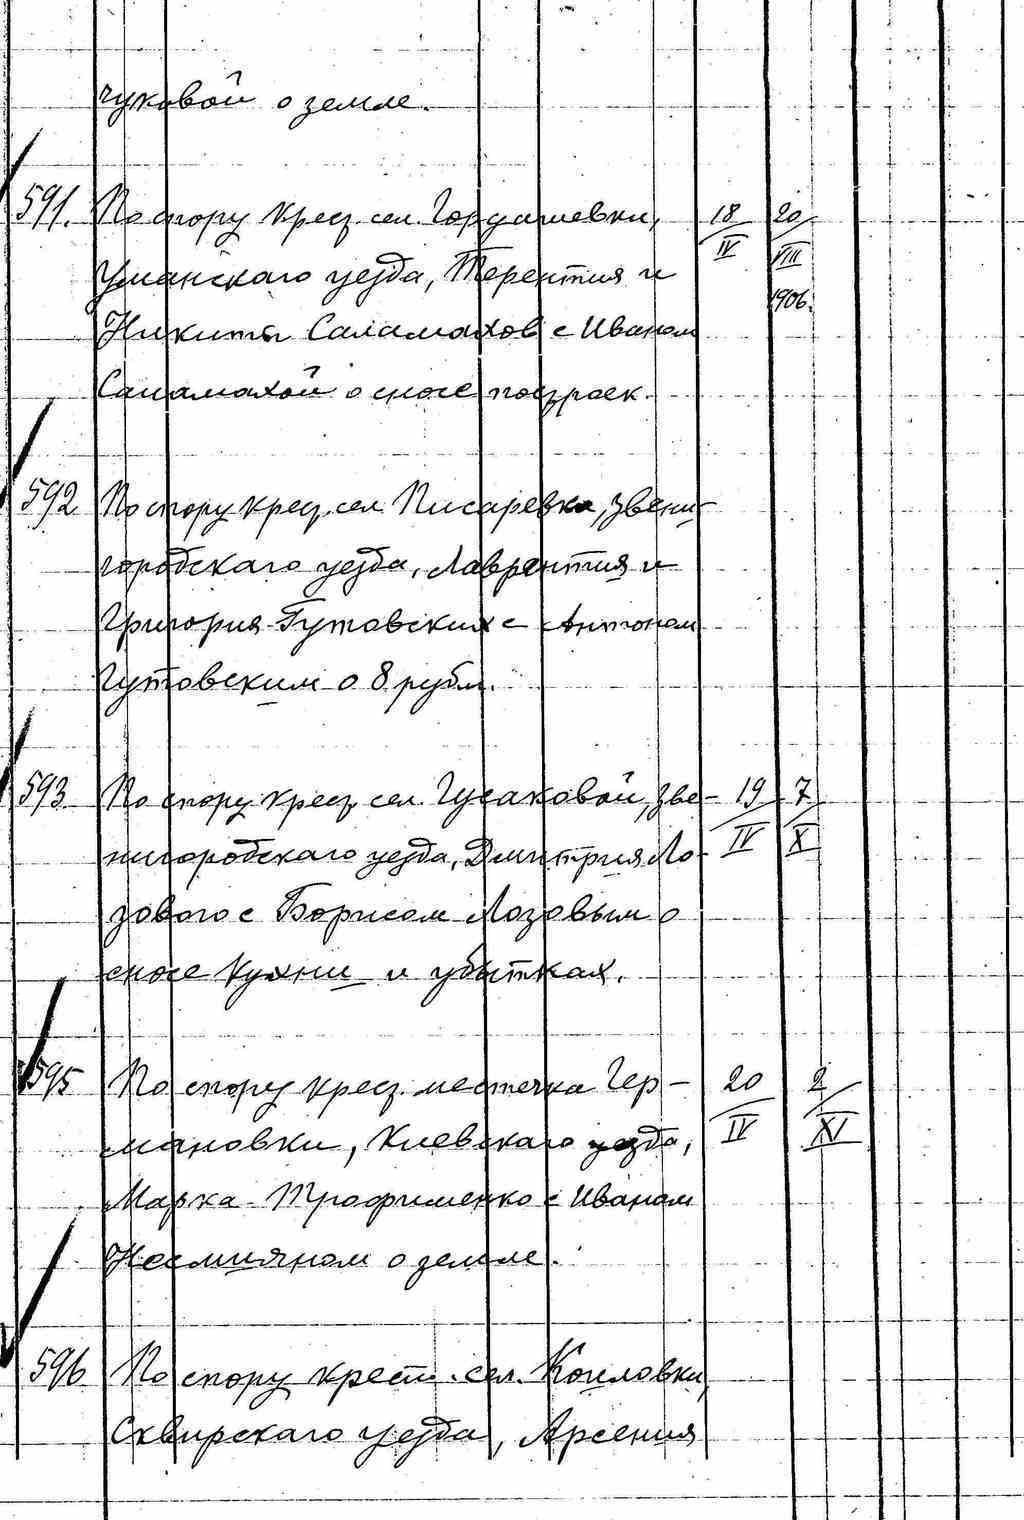 чуковой о земле.
591. По спору крест. сел. Гордашевки, 18 20
Уманскаго уезда, Терентия и IV VIII
Никиты Саламахов с Иваном 1906.
Саламахой о сносе построек.
592 По спору крест. сел. Писаревка, Звени-
городскаго уезда, Лаврентия и
Григория Гутовских с Антоном
Гутовским о 8 рубл.
593 По спору крест. сел. Гусаковой, Зве- 19 7
нигородскаго уезда, Дмитрия Ло- IV X
зового с Борисом Лозовым о
сносе кухни и убытках.
595 По спору крест. местечка Гер- 20 2
мановки, Киевскаго уезда, IV XI
Марка Трофименко с Иваном
Несмияном о земле.
596 По спору крест. сел.
Сквирскаго уезда, Арсения